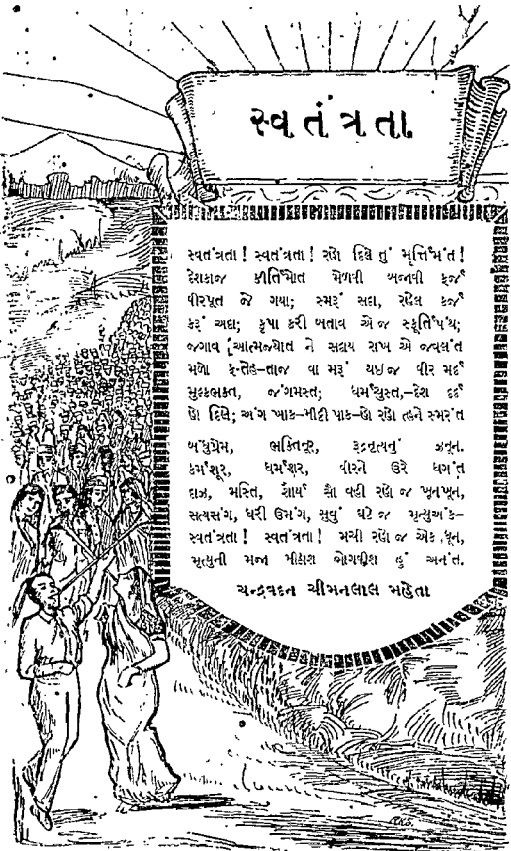 સ્વતંત્રતા
સ્વતંત્રતા! સ્વતંત્રતા! રણે દિલે તું મૂર્ત્તિમંત!
દેશકાજ કીર્તિમોત મેળવી બજાવી ફર્જ
વીરપૂત જે ગયા; સ્મરૂં સદા, રહેલ કર્જ
કરૂં અદા; કૃપા કરી બતાવ એ જ સ્ફૂર્તિપંથ;
જગાવ આત્મજ્યોત ને સદાય રાખ એ જ્વલંત
મળો ફત્તેહ-તાજ વા મરૂં થઇ જ વીર મર્દ
મુલ્કભક્ત, જંગમસ્ત; ધર્મચુસ્ત,-દેશ દર્દ
હો દિલે; અંગ ખાક-મીટ્ટી પાક-હો રણે ત્હને સ્મરંત
બંધુપ્રેમ, ભક્તિનૂર, રૂદ્રનૃત્યનું ઝનૂન.
કર્મશૂર, ધર્મશૂર, વીરને ઉરે ધગંત
દાઝ, મસ્તિ, શૌર્ય સૌ વહી રહો જ ખૂનખૂન,
સત્યસંગ, ધરી ઉમંગ, સુવું ઘટે જ મૃત્યુઅંક-
સ્વતંત્રતા! સ્વતંત્રતા! મચી રહો જ એક ધૂન,
મૃત્યુની મજા મીઠાશ ભોગવીશ હું અનંત.
ચન્દ્રવદન ચીમનલાલ મહેતા